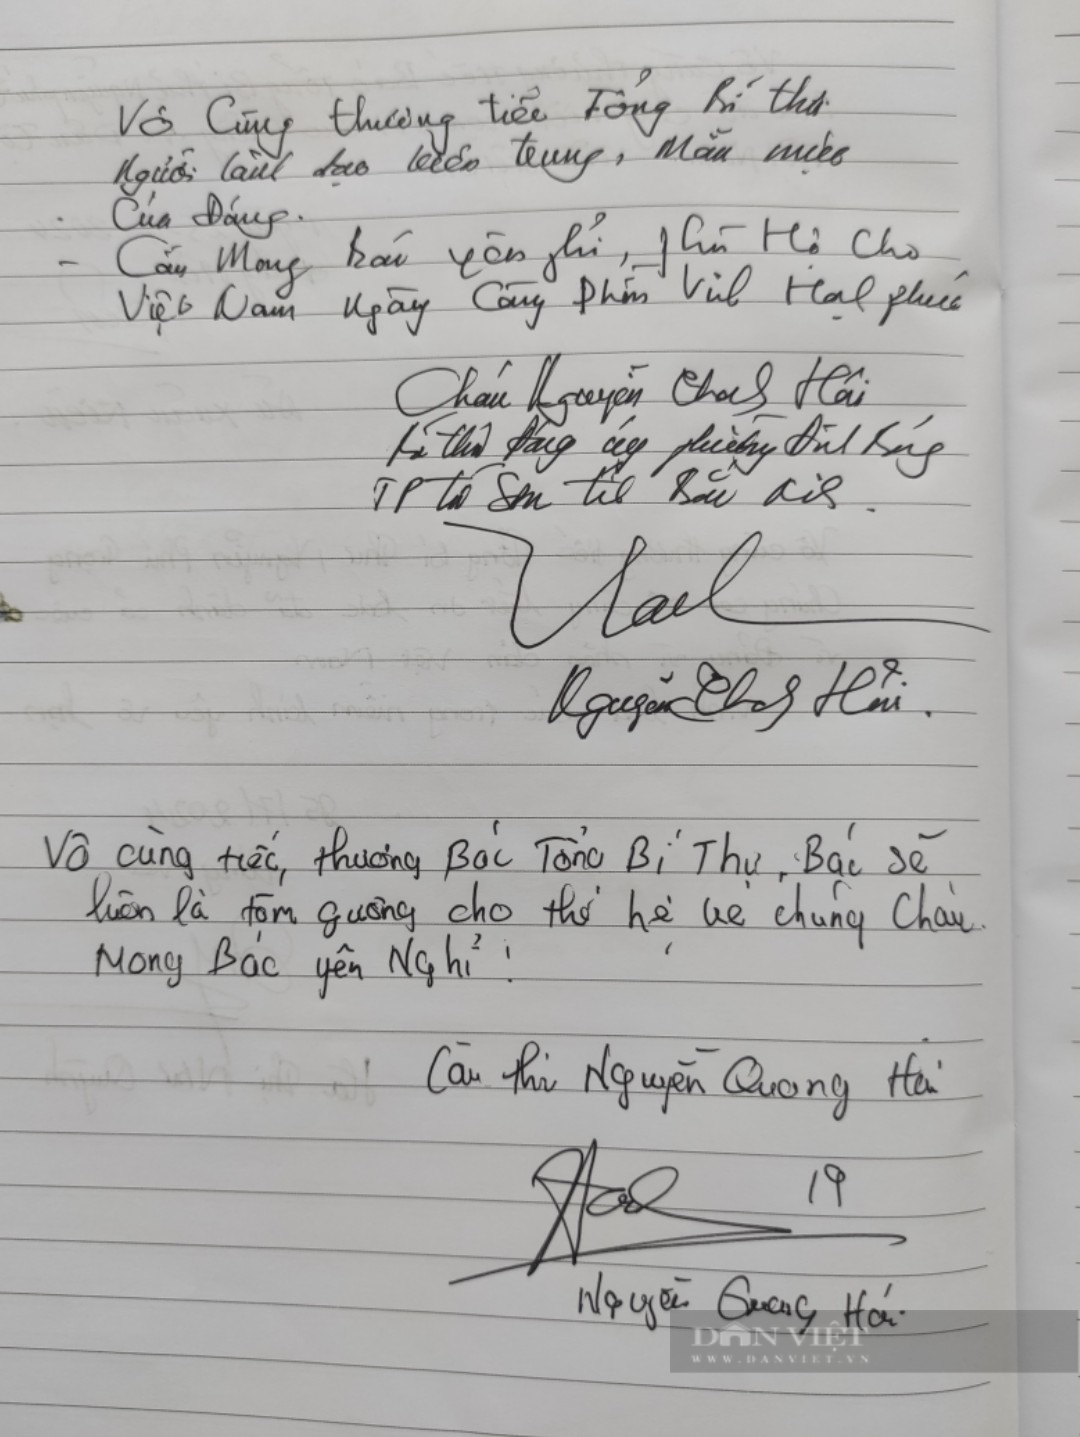 Vô Cùng thương tiếc Tổng Bí thư
Người lãnh đạo kiên trung, Mẫu mực
Của Đảng.
- Cầu Mong Bác yên nghỉ, phù Hộ Cho
Việt Nam Ngày Càng Phồn Vinh Hạnh phúc
Cháu Nguyễn Hải
Bí thư Đảng ủy phường Đình Bảng
TP Từ Sơn tỉnh Bắc Ninh.
Nguyễn Hải.
Vô cùng tiếc, thương Bác Tổng Bí Thư, Bác sẽ
luôn là tấm gương cho thế hệ trẻ chúng Cháu.
Mong Bác yên Nghỉ!
Cầu thủ Nguyễn Quang Hải
19
Nguyễn Quang Hải
DÂN VIỆT
WWW.DANVIET.VN